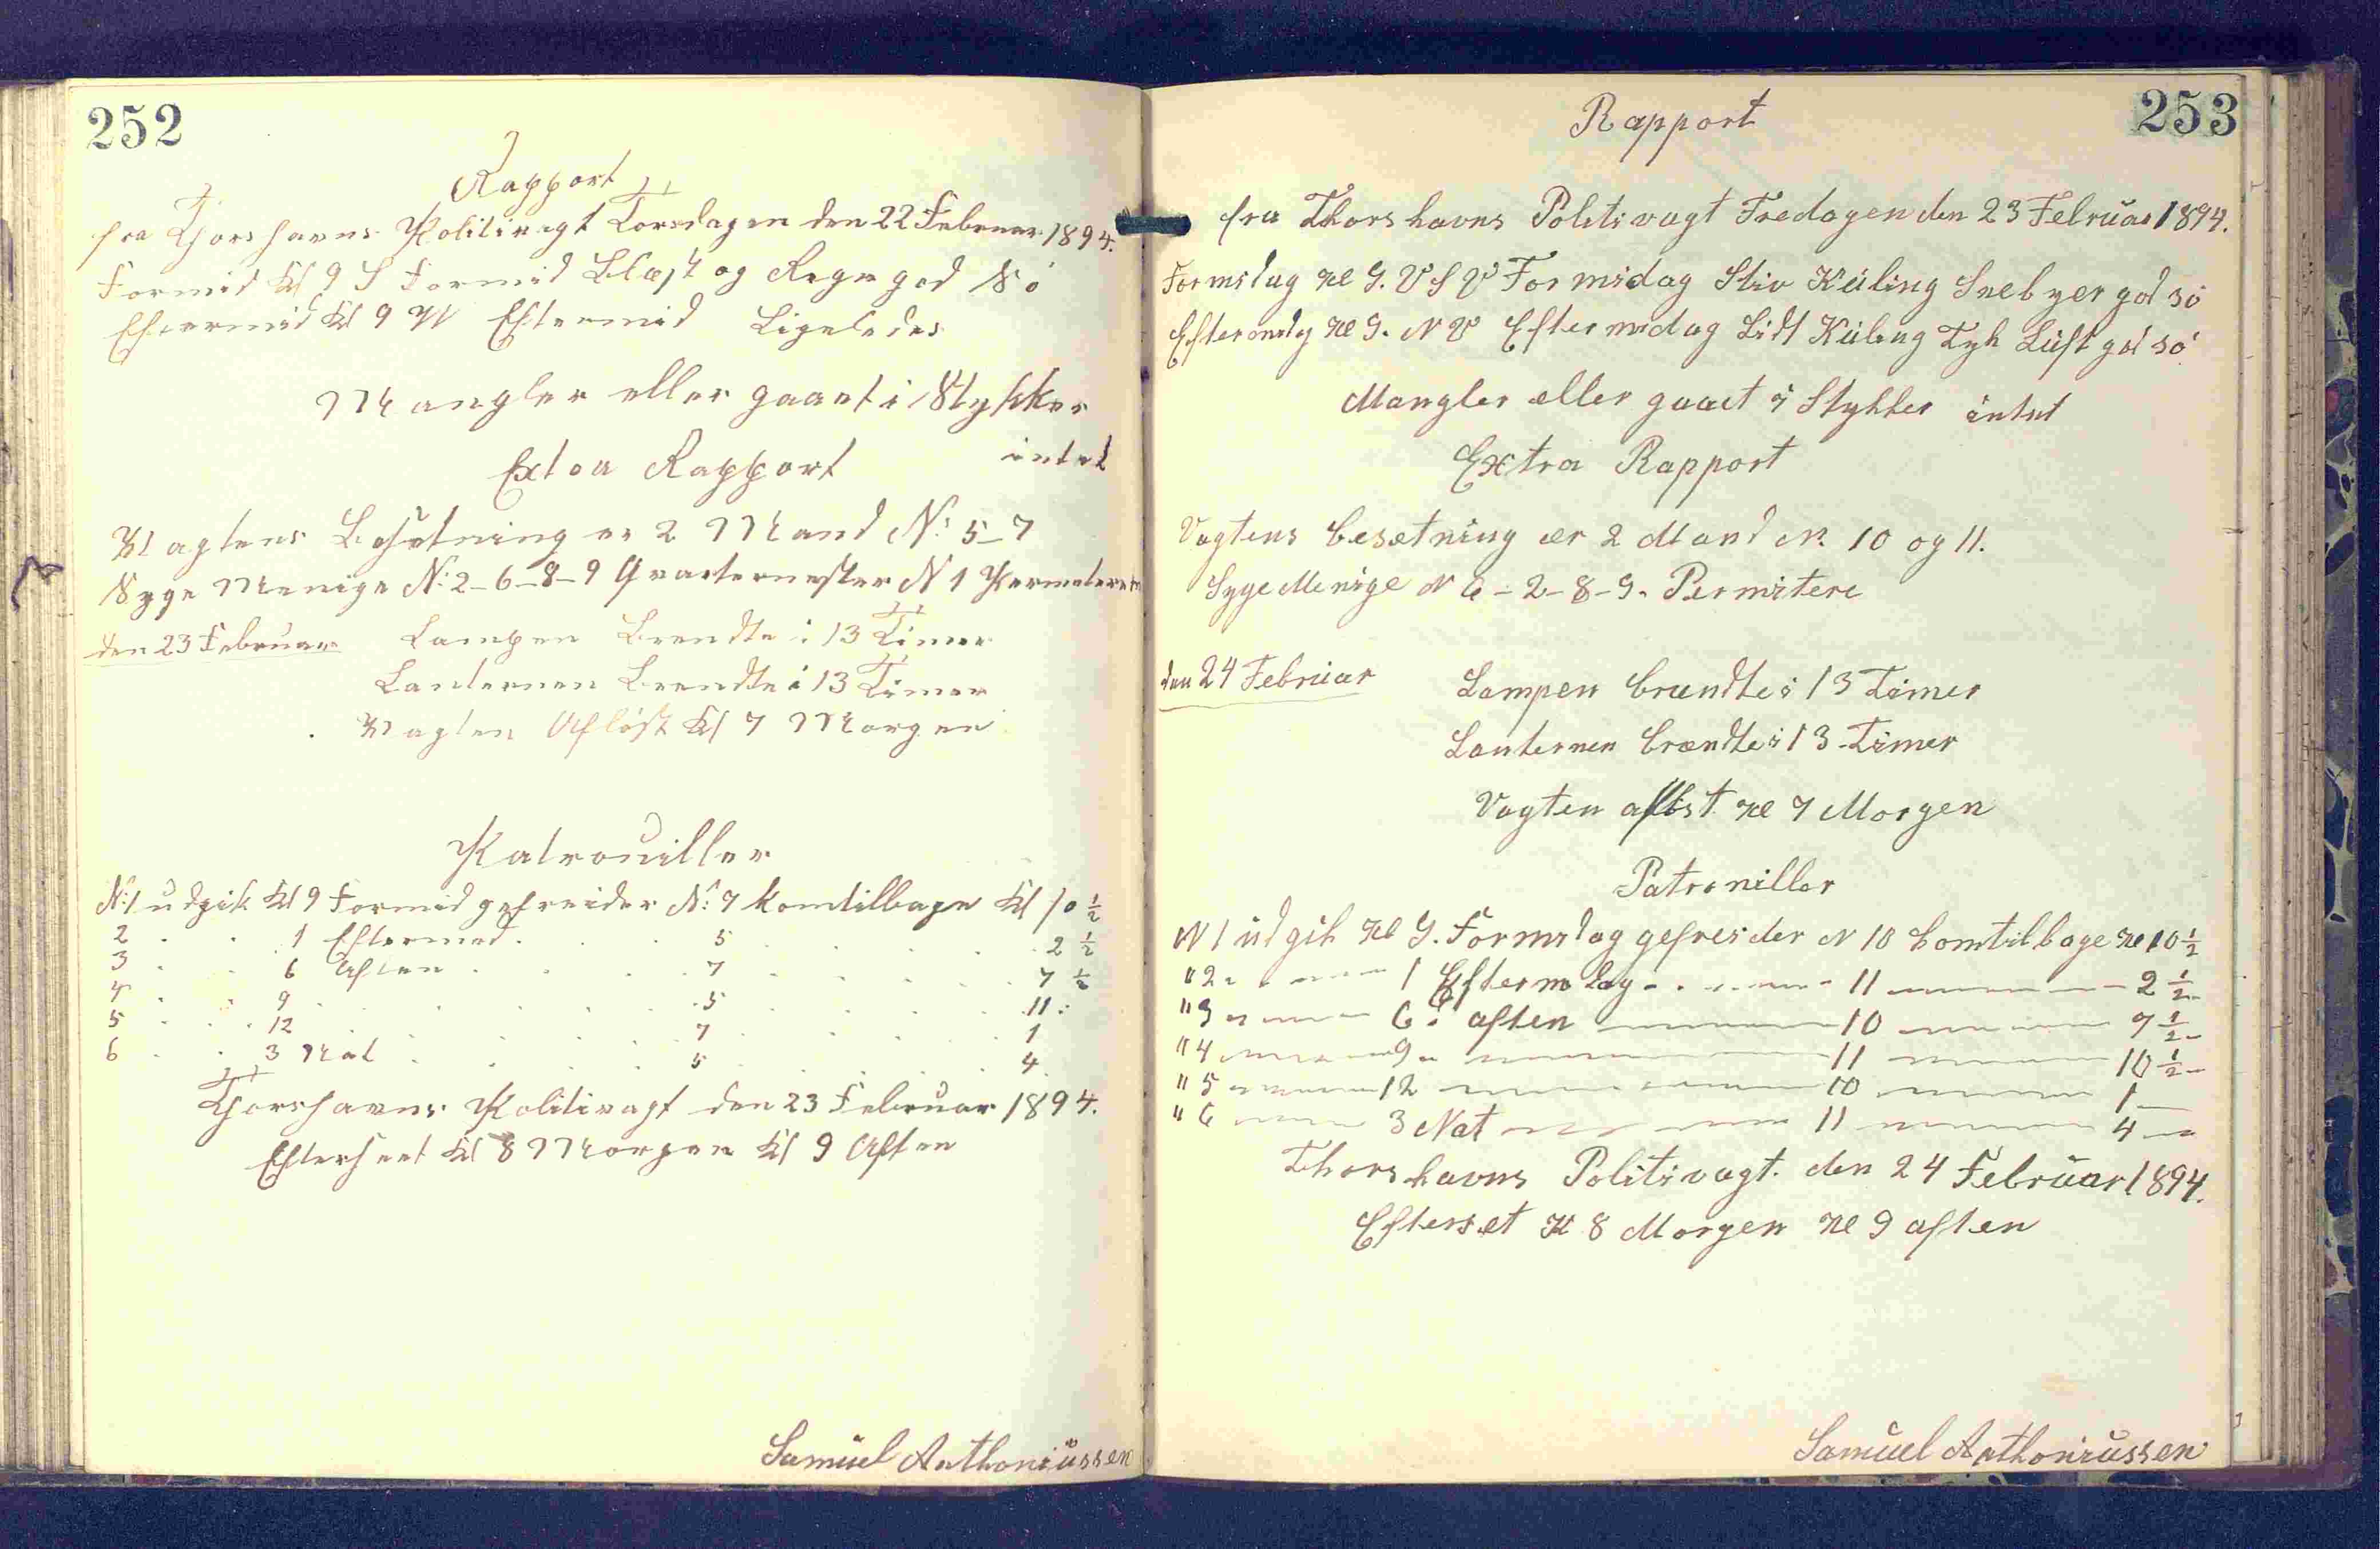 252
Rapport
fra Thorshavns Politivagt Torsdagen den 22 Februar 1894.
Formid Kl 9 S Formid Blæst og Regn god Sö
Eftermid Kl 9 W Eftermid Ligeledes
Mangler eller gaaet i Stykker
intet
Extra Rapport
Vagtens Besetning er 2 Mand N: 5-7
Syge Menige N: 2-6-8-9 Qvartermester N 1 Permeteret
den 23 Februar Lampen Brendte i 13 Timer
Lanternen Brendte i 13 Timer
Vagten Aflöst Kl 7 Morgen
Patrouiller
N: 1 udgik Kl 9 Formid gefreider N: 7 kom tilbage Kl 10 ½
2 . . 1 Eftermed . . . 5 . . . 2 ½
3 . . 6 Aften . . . 7 . . . 7 ½
4 . . 9 . . . 5 . . . 11 :
5 . . 12 . . . 7 . . . 1
6 . . 3 Nat . . . 5 . . . 4
Thorshavns Politivagt den 23 Februar 1894.
Efterseet Kl 8 Morgen Kl 9 Aften
Samuel Anthoniussen
253
Rapport
fra Thorshavns Politivagt Fredagen den 23 Februar 1894.
Formidag Kl 9. V S V Formidag Stiv Kuling Snebyer god sö
Eftermidg Kl 9. N V Eftermidag Lidt Kuling Tyk Luft god sö
Mangler eller gaaet i Stykker intet
Extra Rapport
Vagtens besætning er 2 Mand N. 10 og 11.
Syge Menige N 6-2-8-9. Permitere
den 24 Februar Lampen brændte i 13 Timer
Lanternen brændte i 13 Timer
Vagten aflöst Kl 7 Morgen
Patroniller
N 1 udgik Kl 9. Formidag gefreider N 10 komtilbage Kl 10 ½
" 2 1 Eftermidag 11 2 ½
" 3 6 aften 10 7 ½
" 4 9 11 10 ½
" 5 12 10 1
" 6 3 Nat 11 4
Thorshavns Politivagt. den 24 Februar 1894.
Efterset Kl 8 Morgen Kl 9 aften
Samuel Anthoniussen